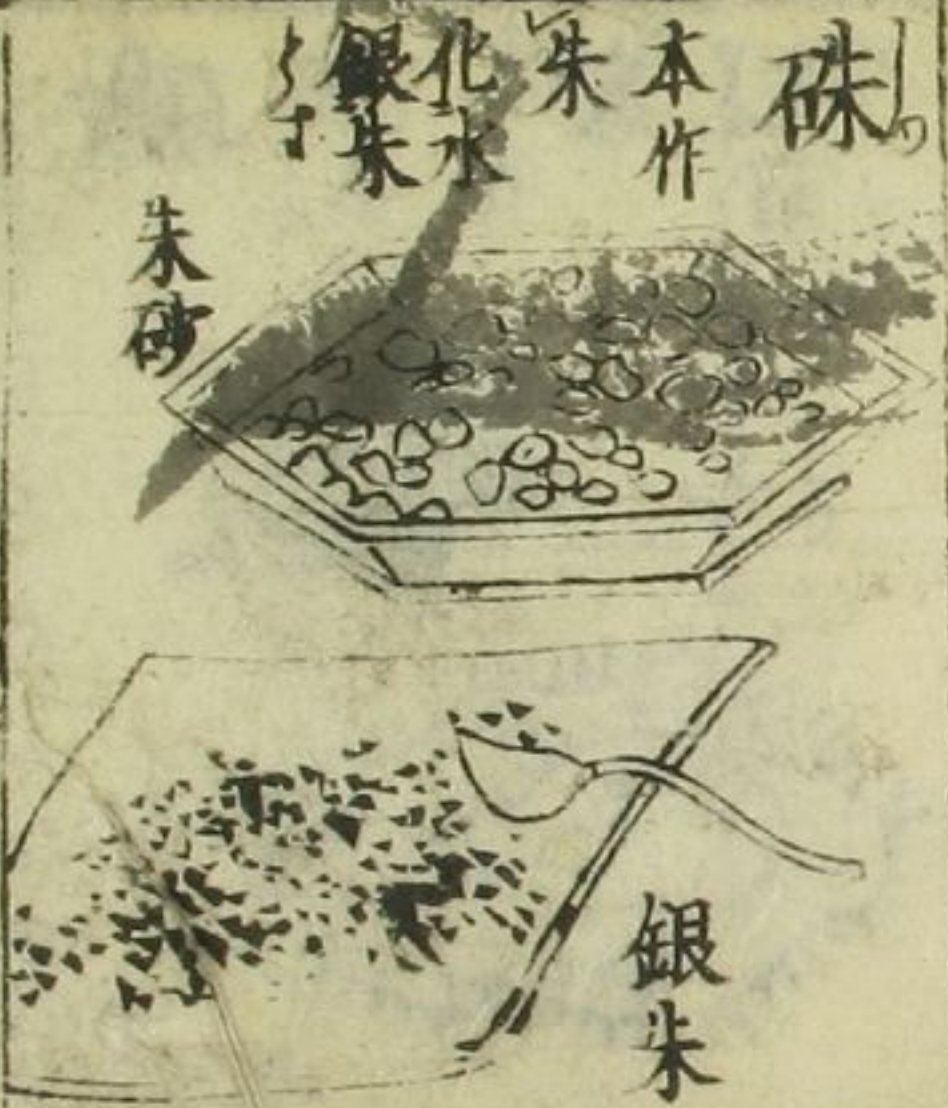 硃
しゆ
本作
レ朱
化水
銀朱
とす
朱砂
銀朱